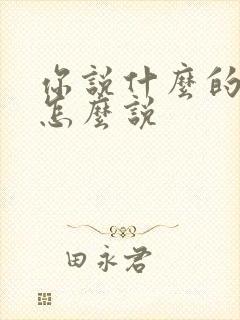 你說什麼的
怎麼說
田永君